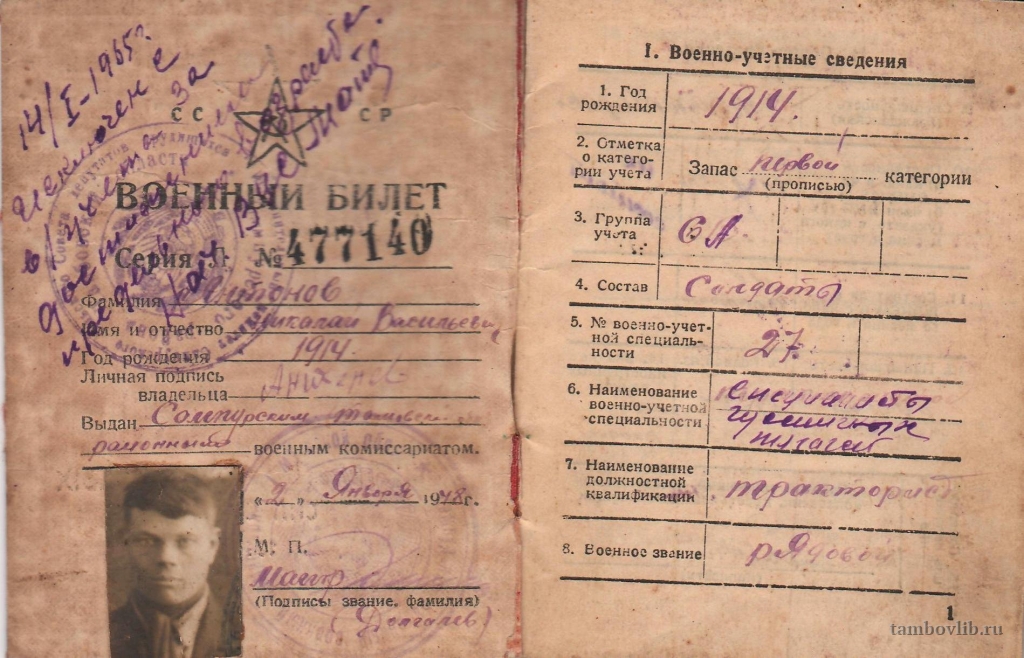 14/I-1965г.
исключен с
в/учета за
достижением
предельного возраста
СС СР
ВОЕННЫЙ БИЛЕТ
Серия Л № 477140
Фамилия Антонов
Имя и отчество Николай Васильевич
Год рождения 1914
Личная подпись
владельца
Выдан Сампурским Тамбовской
районным военным комиссариатом.
«2» Января 1948 г.
М. П.
Майор
(Подписы звание, фамилия)
(Долгачев)
I. Военно-учетные сведения
1. Год
рождения 1914.
2. Отметка
о катего-
рии учета Запас первой категории
(прописью)
3. Группа
учета СА
4. Состав Солдаты
5. № военно-учет-
ной специаль-
ности 27
6. Наименование
военно-учетной
специальности Специалисты
гусеничных
тягачей
7. Наименование
должностной
квалификации тракторист
8. Военное звание рядовой
1
tambovlib.ru